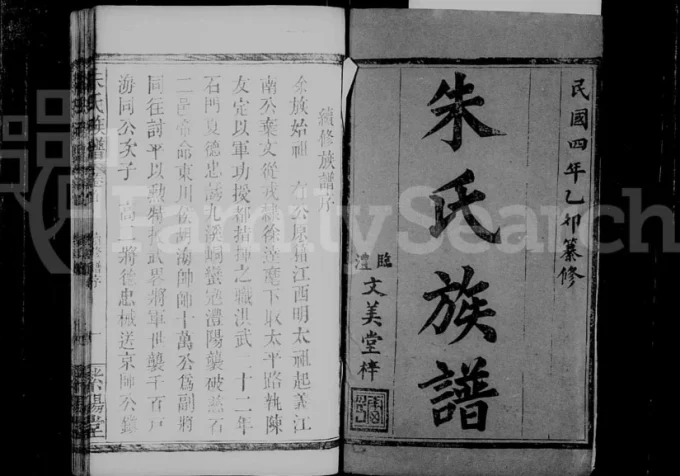 民國四年乙卯纂修
朱氏族譜
臨澧
文美堂梓
續修族譜序
余族始祖 有公原籍江西明太祖起義江
南公棄文從戎 徐達麾下取太平路執陳
友定以軍功授都指揮之職洪武二十二年
石門夏德忠誘九溪峒蠻寇澧陽襲破慈石
二邑帝命東川侯胡海帥師十萬公為副將
同往討平以勳 武畧將軍世襲千百戶
海同公次子 上將德忠械送京師公鎮
朱氏族譜
續修譜序
一
陽堂
FamilySearch